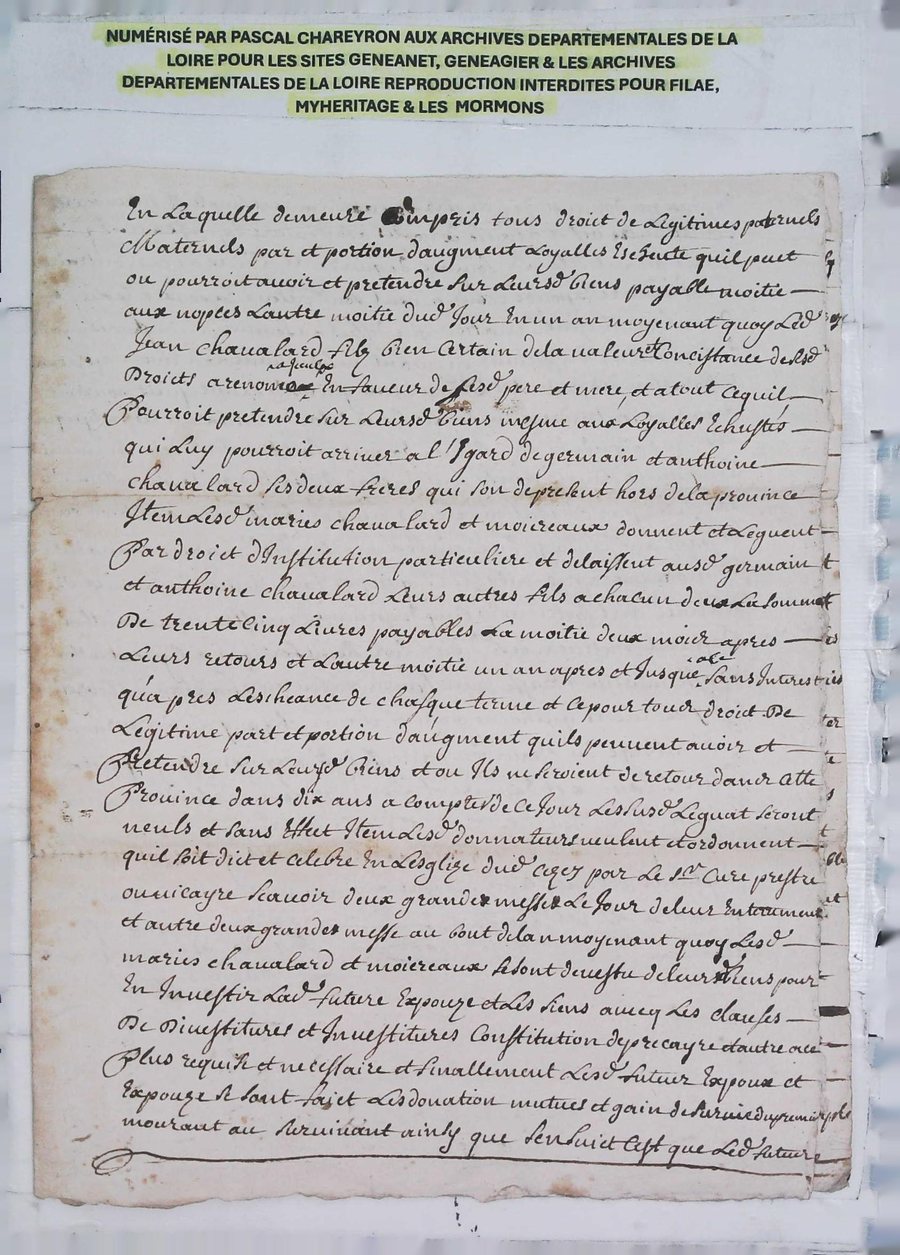 NUMÉRISÉ PAR PASCAL CHAREYRON AUX ARCHIVES DEPARTEMENTALES DE LA
LOIRE POUR LES SITES GENEANET, GENEAGIER & LES ARCHIVES
DEPARTEMENTALES DE LA LOIRE REPRODUCTION INTERDITES POUR FILAE,
MYHERITAGE & LES MORMONS
En Laquelle demeure Compris tous droict de Legitimes paternels
Maternels par et portion daugment Loyalles Escheute quil peut
ou pourroit avoir et pretendre sur Leursd biens payable moitie
aux nopces Lautre moitie dud Jour En un an moyenant quoy Led
Jean chavalard filz bien Certain de la valeur et Concistance desd
Droicts a En faveur de sesd pere et mere, et a tout Cequil
Pourroit pretendre sur Leursd biens mesme aux Loyalles Echustes
qui Luy pourroit arriver a l'Egard de germain et anthoine
chavalard ses deux freres qui son de present hors de la province
Item Lesd maries chavalard et moicreaux donnent et Leguent
Par droict d'Institution particuliere et delaissent ausd germain
et anthoine chavalard Leurs autres fils a chacun deux La somme
De trente Cinq Livres payables La moitie deux moicz apres
Leurs retours et Lautre moitie un an apres et Jusque sans Interest
qu'a pres Lescheance de chasque terme et Ce pour toucz droict De
Legitime part et portion daugment quils peuvent avoir et
Pretendre sur Leursd biens et ou Ils ne seroient de retour dancz Cette
Province dans dix ans a compter de Ce Jour Les susd Leguat seront
neuls et sans Effect Item Lesd donnateurs veulent et ordonnent
quil soit dict et Celebre En Lesglize dud par Le Sr Cure prestre
ou vicayre Scavoir deux grandes messes Le Jour de leur Enterrement
et autre deux grandes messe au bout de lan moyenant quoy Lesd
maries chavalard et moicreaux se sont devestu de leursd biens pour
En Investir Lad future Expouze et Les siens avecq Les clauses
De Divestitures et Investitures Constitution de precayre et autre
Plus requise et necessaire et finallement Lesd futur Expoux et
Expouze se sont fajct Les donation mutues et gain de survie du premier
mourant au survivant ainsy que sensuict Cest que Led futur